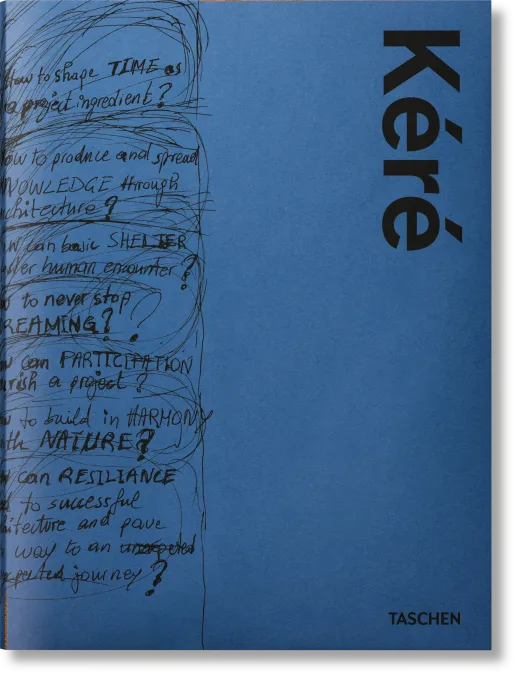 How to shape TIME as
a project ingredient?
ow to produce and spread
NOWLEDGE through
chitecture?
w can basic SHELTER
human encounter?
w to never stop
REAMING??
w can PARTICIPATION
urish a project?
w to build in HARMONY
ith NATURE?
w can RESILIANCE
d to successful
hitecture and pave
way to an
xpected journey?
Kéré
TASCHEN